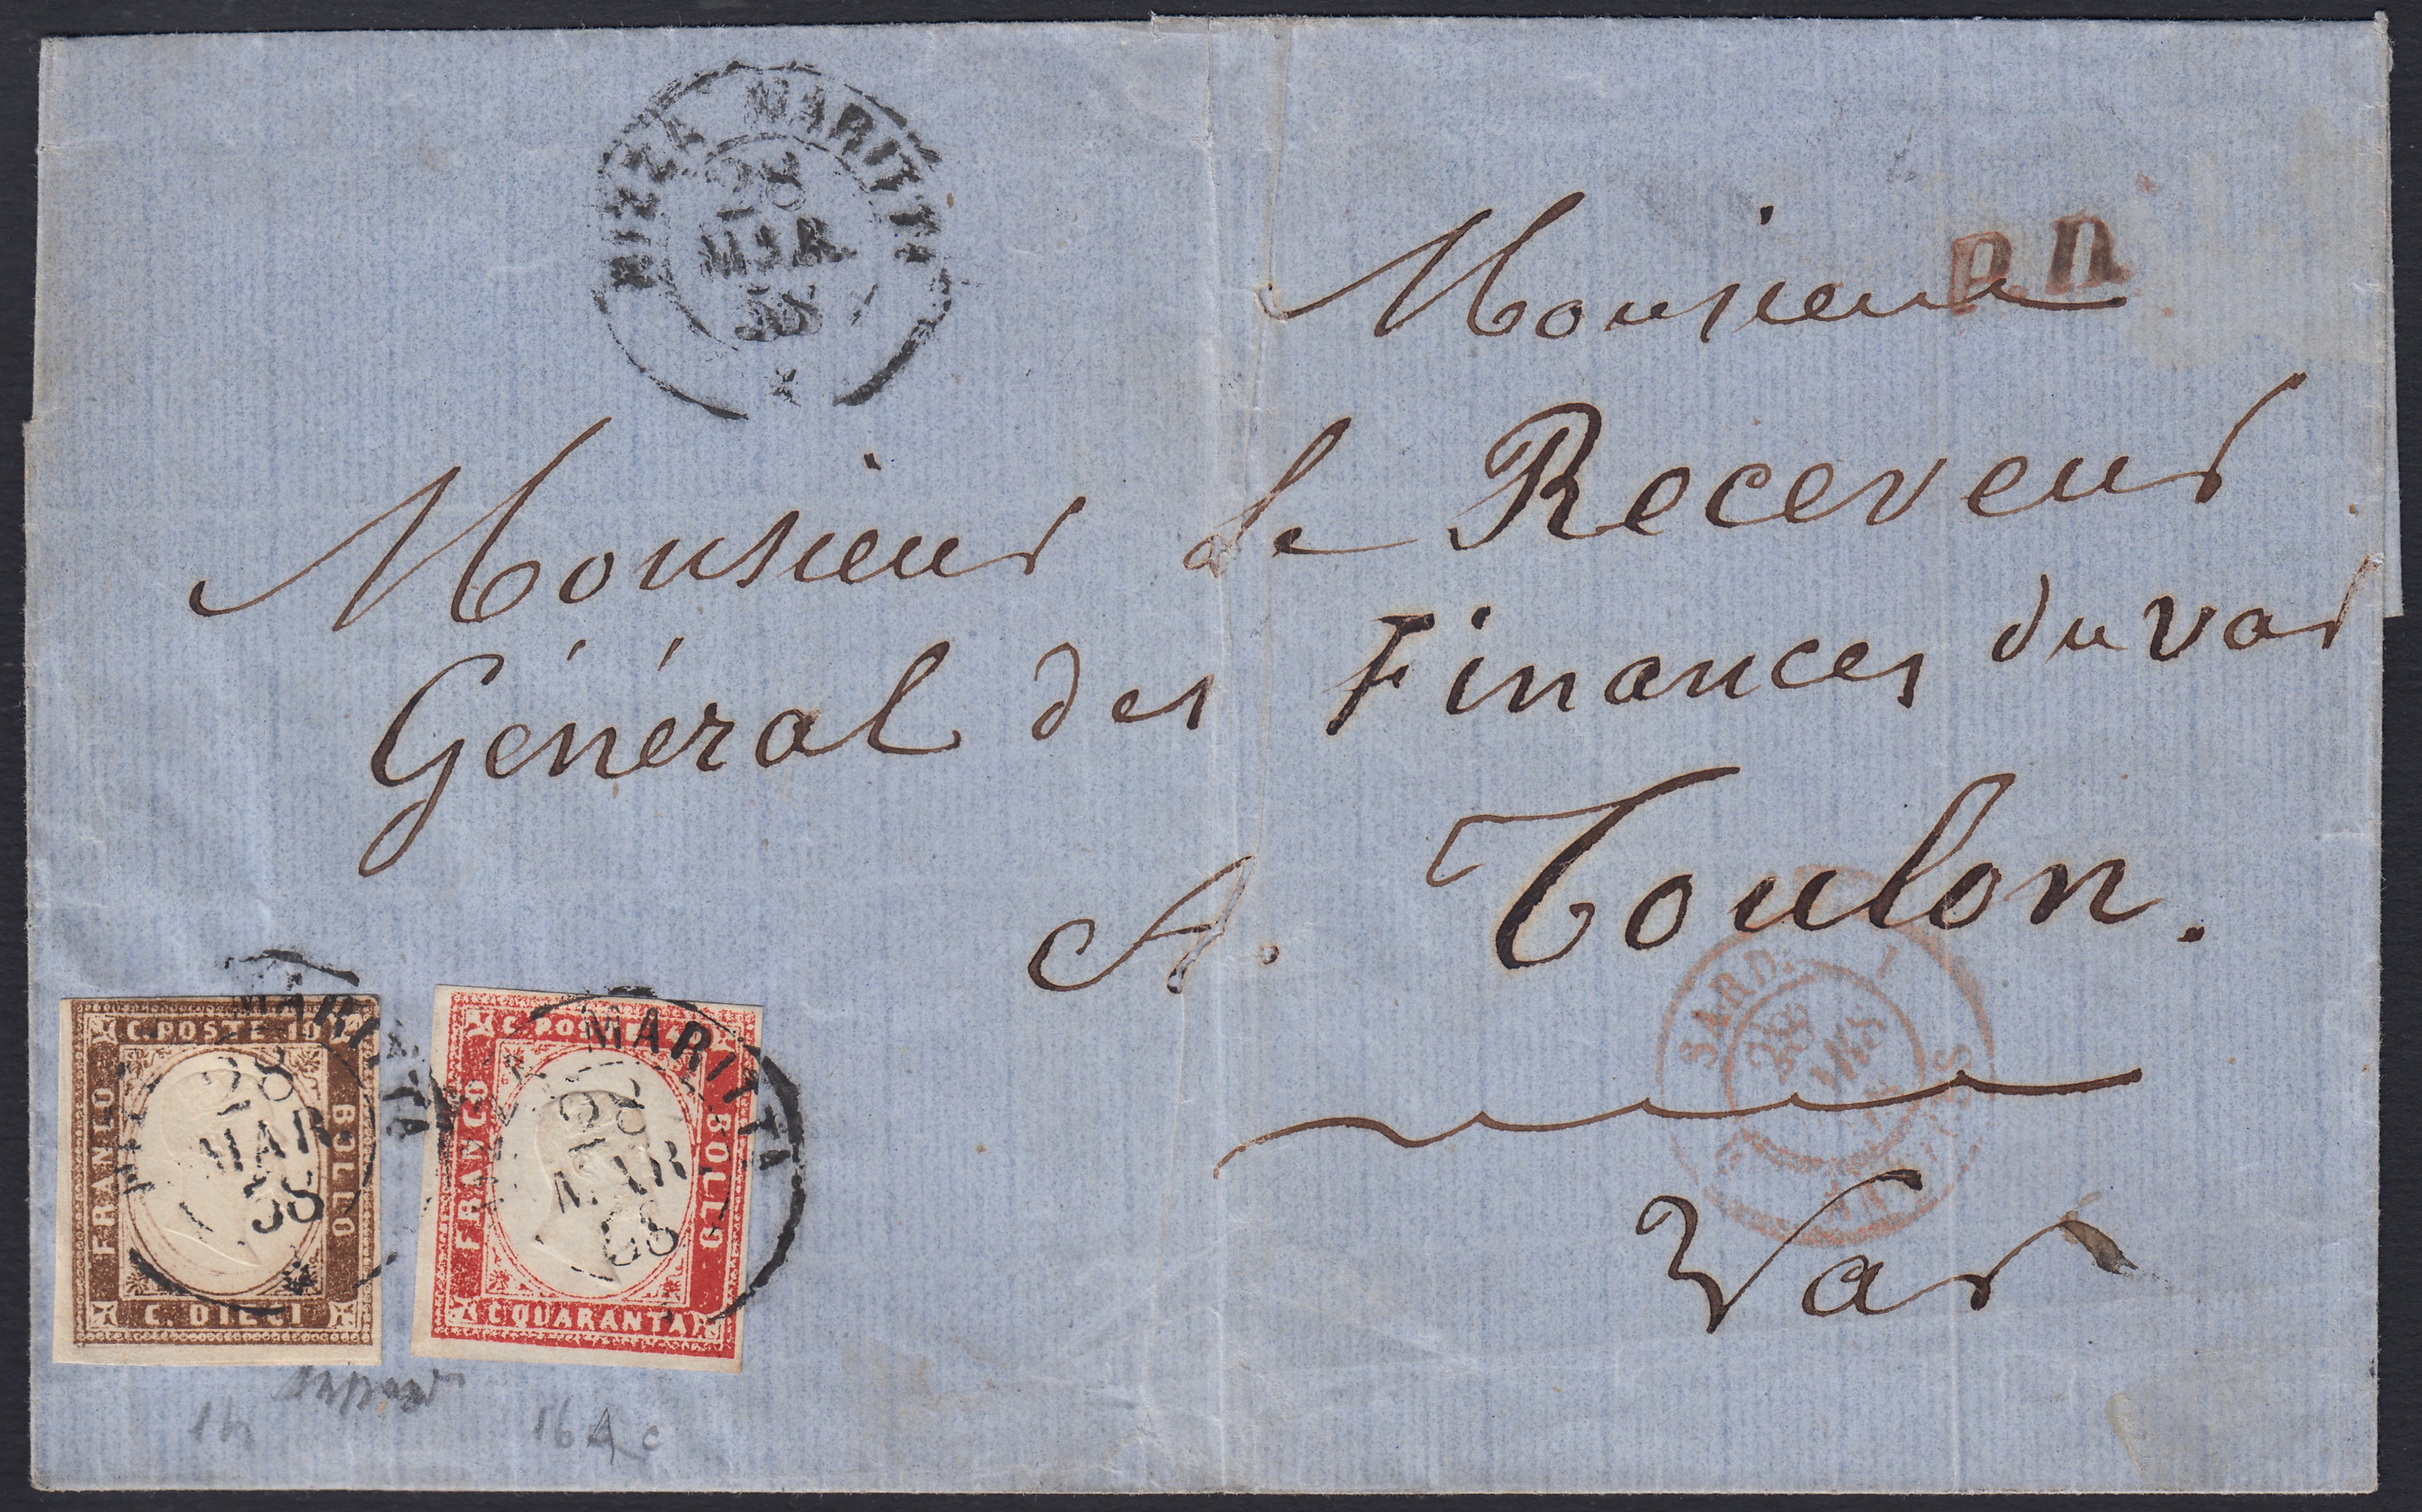 NIZZA MARITTA
28
MAR
58
P.D.
Monsieur
Monsieur le Receveur
Général des Finances du var
A. Toulon.
Var
SARD.
28
MARS
ANTIBES
C. POSTE 10
FRANCO
BOLLO
C. DIECI
MARITTA
28
MAR
58
C. POSTE 4
FRANCO
BOLLO
C. QUARANTA
MARITTA
28
MAR
58
14
16Ac